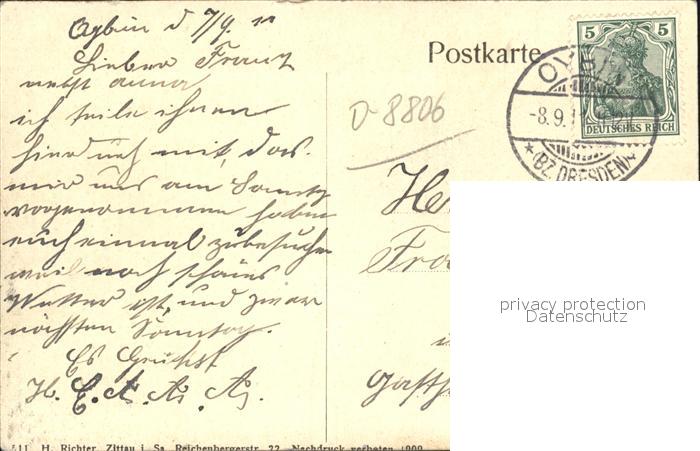 Oybin d 7/9. 11
Lieber Franz
nebst Anna
ich teile ihnen
hierdurch mit, das
wir uns am Sonntg
vorgenommen haben
euch einmal zubesuchen
weil noch schönes
Wetter ist, und zwar
nächsten Sonntag.
Es Grüßt
H. E. A. A. A.
Postkarte
D-8806
5 5
DEUTSCHES REICH
OYBIN
-8.9.11
*(BZ. DRESDEN)*
He
Fra
in
Gasth
privacy protection
Datenschutz
511 H. Richter, Zittau i. Sa. Reichenbergerstr. 22. Nachdruck verboten 1909